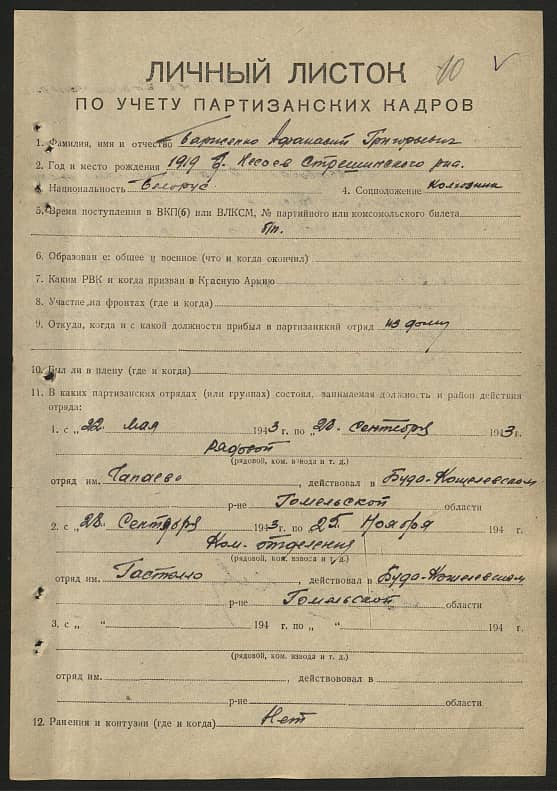 10 V
ЛИЧНЫЙ ЛИСТОК
ПО УЧЕТУ ПАРТИЗАНСКИХ КАДРОВ
1. Фамилия, имя и отчество Борисенко Афанасий Григорьевич
2. Год и место рождения 1919 Стрешинского р-на.
3. Национальность белорус 4. Соцположение Колхозник
5. Время поступления в ВКП(б) или ВЛКСМ, № партийного или комсомольского билета
б/п.
6. Образование: общее и военное (что и когда окончил)
7. Каким РВК и когда призван в Красную Армию
8. Участие на фронтах (где и когда)
9. Откуда, когда и с какой должности прибыл в партизанккий отряд из дому
10. Был ли в плену (где и когда)
11. В каких партизанских отрядах (или группах) состоял, занимаемая должность и район действия
отряда:
1. с „22. мая 1943 г. по „23. сентября 1943 г.
рядовой
(рядовой, ком. взвода и т. д.)
отряд им. Чапаева, действовал в Буда-Кошелевском
р-не Гомельской области
2. с „23. Сентября 1943 г. по 25. Ноября 194 г.
Ком. отделения
(рядовой, ком. взвоса и т. д.)
отряд им. Гастелло, действовал в Буда-Кошелевском
р-не Гомельской области
3. с „ “ 194 г. по „ “ 194 г.
(рядовой, ком. взвода и т. д.)
отряд им. , действововал в
р-не области
12. Ранения и контузии (где и когда) Нет